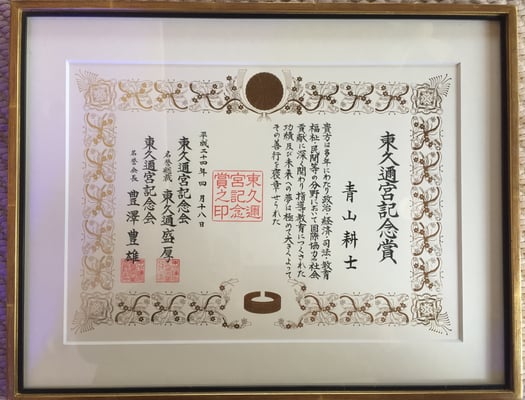 東久邇宮記念賞
青山耕士
貴方は多年にわたり政治・経済・司法・教育
福祉・民間等の分野において国際協力・社会
貢献に深く関わり指導教育につくされた
功績及び未来への夢は極めて大きくよって
その善行を褒章せられた
東久邇
宮記念
賞之印
平成二十四年 四月十八日
東久邇宮記念会
名誉総裁 東久邇盛厚
東久邇宮記念会
名誉会長 豊澤豊雄